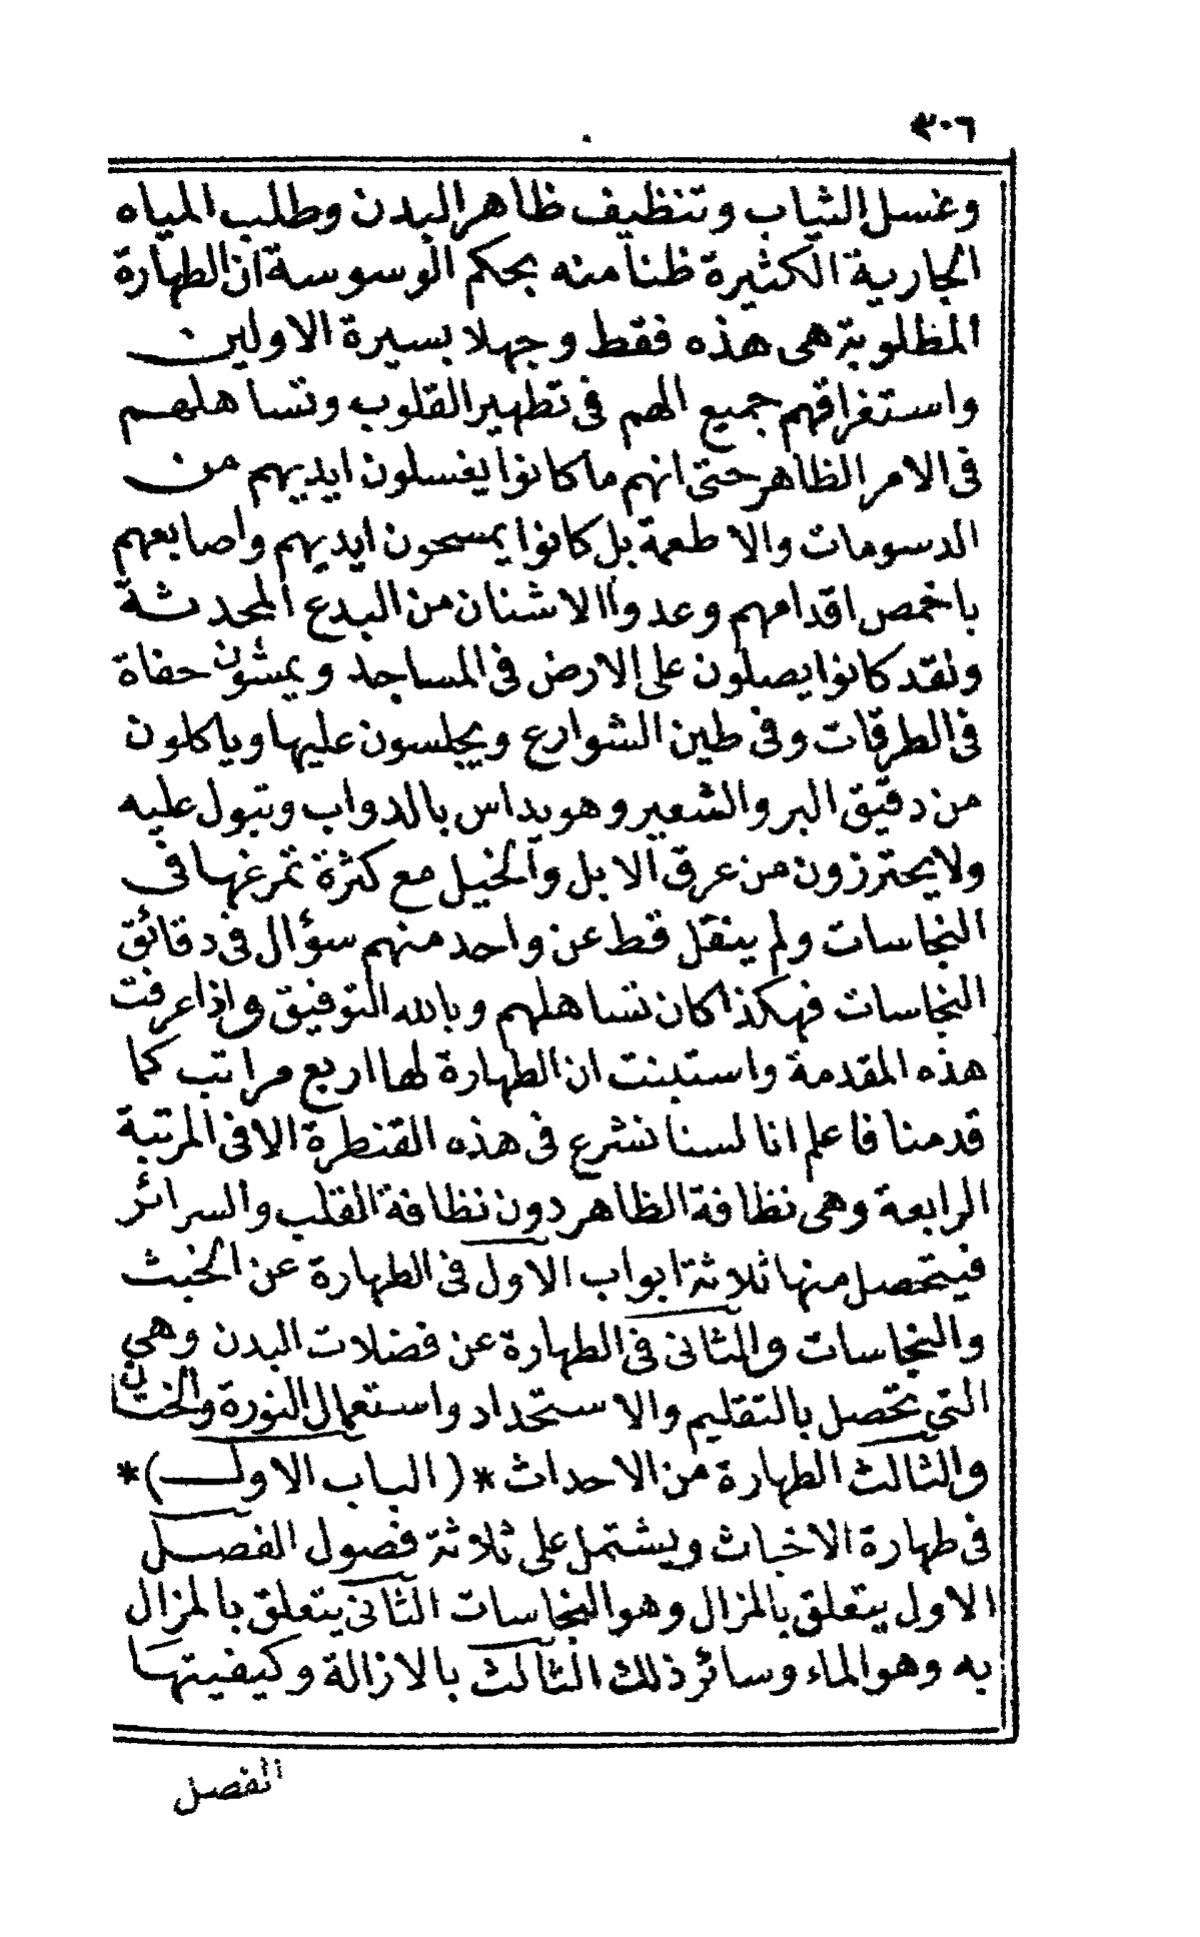 ٣٠٦
وغسل الثياب وتنظيف ظاهر البدن وطلب المياه
الجارية الكثيرة ظنا منه بحكم الوسوسة ان الطهارة
المطلوبة هى هذه فقط وجهلا بسيرة الاولين
واستغراقهم جميع الهم فى تطهير القلوب وتساهلهم
فى الامر الظاهر حتى انهم ما كانوا يغسلون ايديهم من
الدسومات والاطعمة بل كانوا يمسحون ايديهم واصابعهم
باخمص اقدامهم وعدوا الاشنان من البدع المحدثة
ولقد كانوا يصلون على الارض فى المساجد ويمشون حفاة
فى الطرقات وفى طين الشوارع ويجلسون عليها وياكلون
من دقيق البر والشعير وهو يداس بالدواب وتبول عليه
ولا يحترزون من عرق الابل والخيل مع كثرة تمرغها فى
النجاسات ولم ينقل قط عن واحد منهم سؤال فى دقائق
النجاسات فهكذا كان تساهلهم وبالله التوفيق واذا عرفت
هذه المقدمة واستبنت ان الطهارة لها اربع مراتب كما
قدمنا فاعلم انا لسنا نشرع فى هذه القنطرة الا فى المرتبة
الرابعة وهى نظافة الظاهر دون نظافة القلب والسرائر
فيتحصل منها ثلاثة ابواب الاول فى الطهارة عن الخبث
والنجاسات والثانى فى الطهارة عن فضلات البدن وهى
التى تحصل بالتقليم والاستحداد واستعمال النورة والختان
والثالث الطهارة من الاحداث *(الباب الاول)*
فى طهارة الاخباث ويشتمل على ثلاثة فصول الفصل
الاول يتعلق بالمزال وهو النجاسات الثانى يتعلق بالمزال
به وهو الماء وسائر ذلك الثالث بالازالة وكيفيتها
الفصل